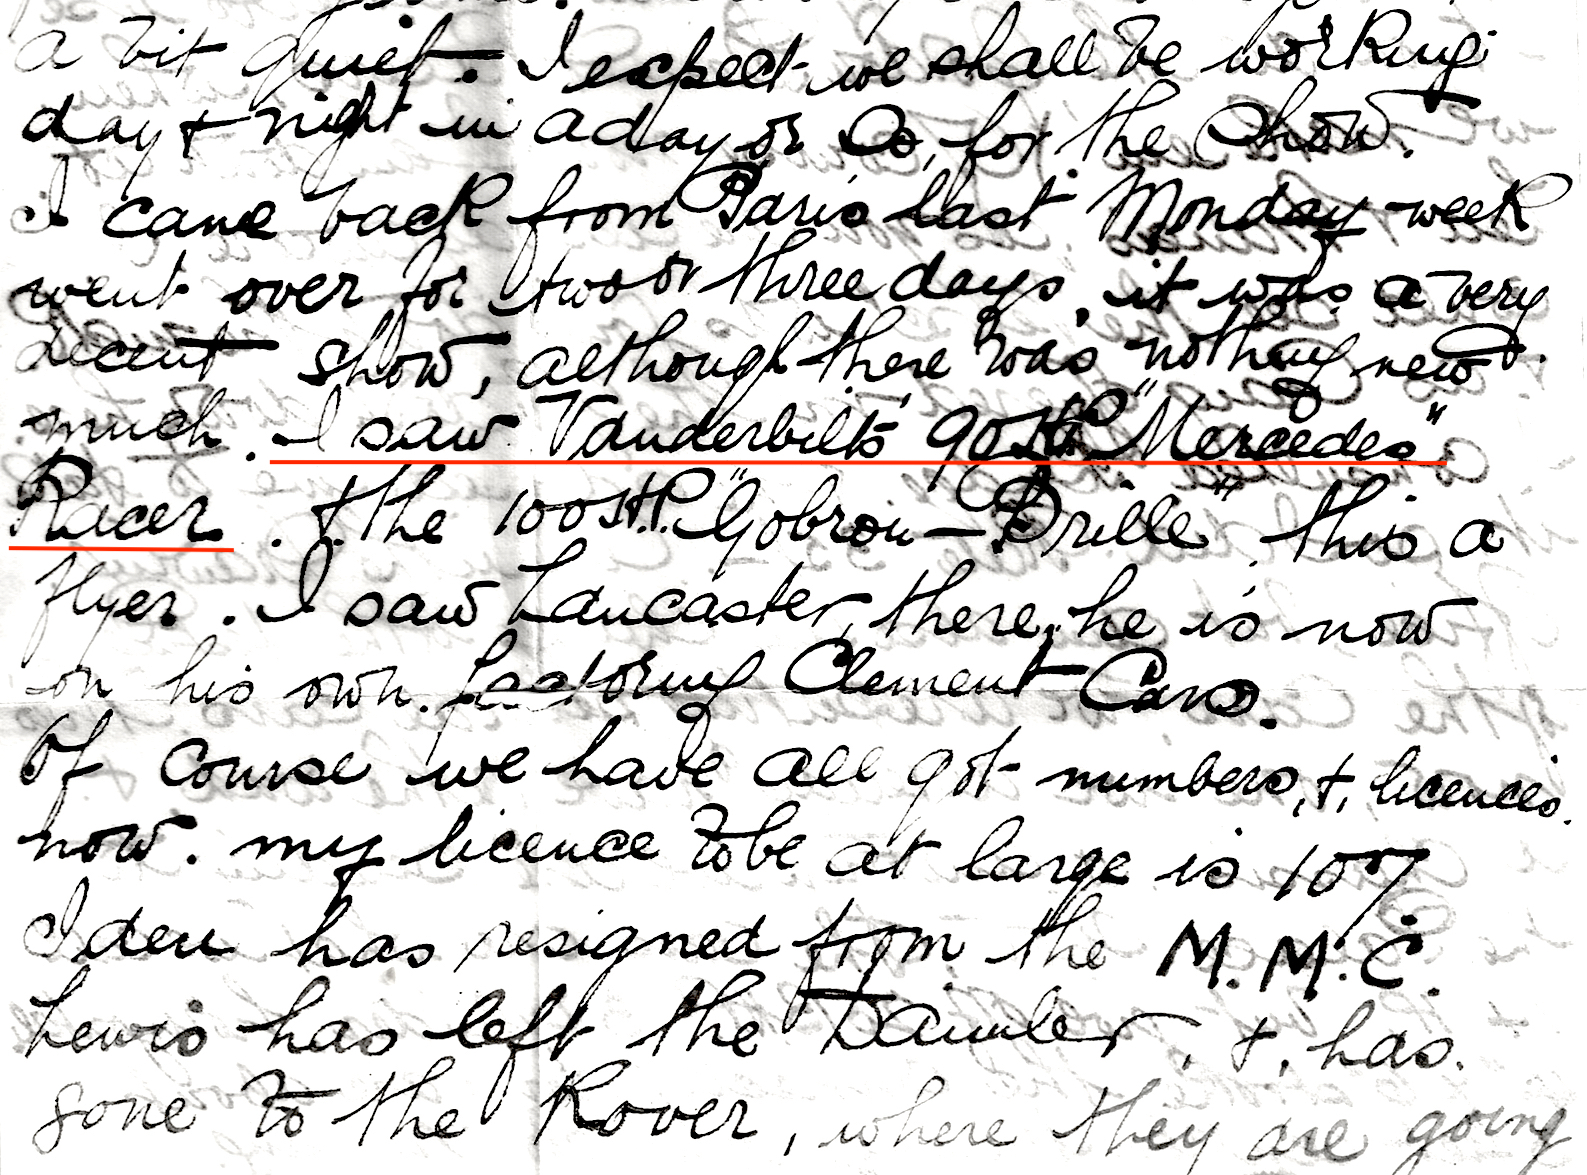 a bit quiet. I expect we shall be working
day & night in a day or so, for the Show.
I came back from Paris last Monday week
went over for two or three days, it was a very
decent show, although there was nothing new
much. I saw Vanderbilts 90 H.P. "Mercedes"
Racer. & the 100 H.P. "Gobron-Brille" this a
flyer. I saw Lancaster, there, he is now
on his own factoring Clement Cars.
Of course we have all got numbers, & licences.
now. my licence to be at large is 107
Iden has resigned from the M.M.C.
Lewis has left the Daimler, & has.
gone to the Rover, where they are going